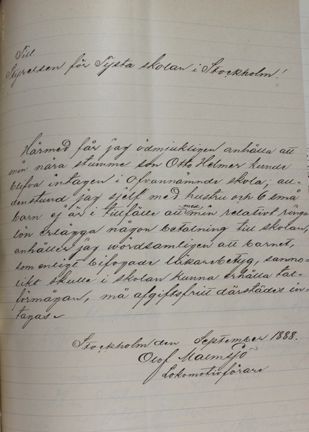 Till
Styrelsen för Tysta skolan i Stockholm!
Härmed får jag ödmjukligen anhålla att
min nära stumme son Otto Helmer kunde
blifva intagen i ofvannämnde skola, all-
denstund jag sjelf med hustru och 6 små
barn ej är i tillfälle att min relativt ringa
lön erlägga någon betalning till skolan,
anhåller jag wördsamligen att barnet,
som enligt bifogade läkarebetyg, sanno-
likt skulle i skolan kunna erhålla tal-
förmågan, må afgiftsfritt därstädes in-
tagas.
Stockholm den September 1888.
Olof Malmsjö
Lokomotivförare